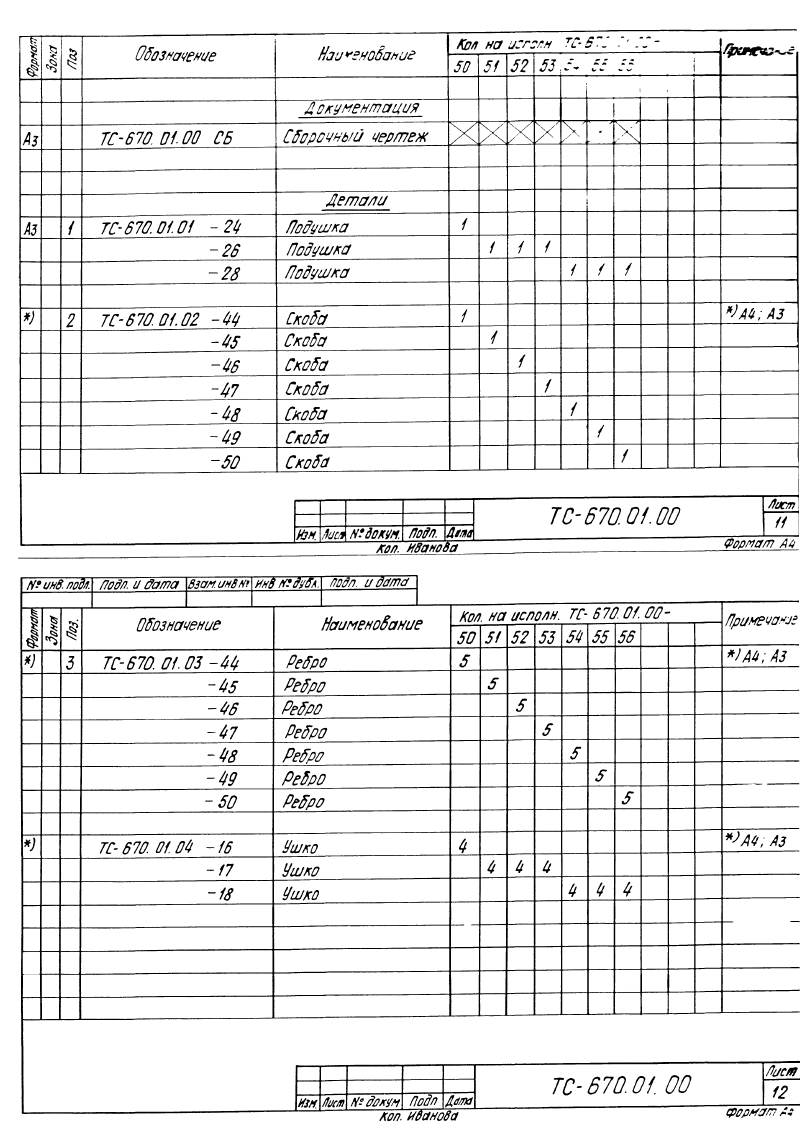 Формат Зона Поз Обозначение Наименование Кол на исполн ТС-670.01.00- Примечание
50 51 52 53 54 55 56
Документация
А3 ТС-670.01.00 СБ Сборочный чертеж
Детали
А3 1 ТС-670.01.01 -24 Подушка 1
-26 Подушка 1 1 1
-28 Подушка 1 1 1
*) 2 ТС-670.01.02 -44 Скоба 1 *) А4; А3
-45 Скоба 1
-46 Скоба 1
-47 Скоба 1
-48 Скоба 1
-49 Скоба 1
-50 Скоба 1
ТС-670.01.00 Лист
11
Изм. Лист № докум. Подп. Дата
Коп. Иванова Формат А4
№ инв. подл. Подп. и дата Взам. инв № Инв № дубл. Подп. и дата
Формат Зона Поз. Обозначение Наименование Кол. на исполн. ТС-670.01.00- Примечание
50 51 52 53 54 55 56
*) 3 ТС-670.01.03 -44 Ребро 5 *) А4; А3
-45 Ребро 5
-46 Ребро 5
-47 Ребро 5
-48 Ребро 5
-49 Ребро 5
-50 Ребро 5
*) ТС-670.01.04 -16 Ушко 4 *) А4; А3
-17 Ушко 4 4 4
-18 Ушко 4 4 4
ТС-670.01.00 Лист
12
Изм. Лист № докум Подп Дата
Коп. Иванова Формат А4